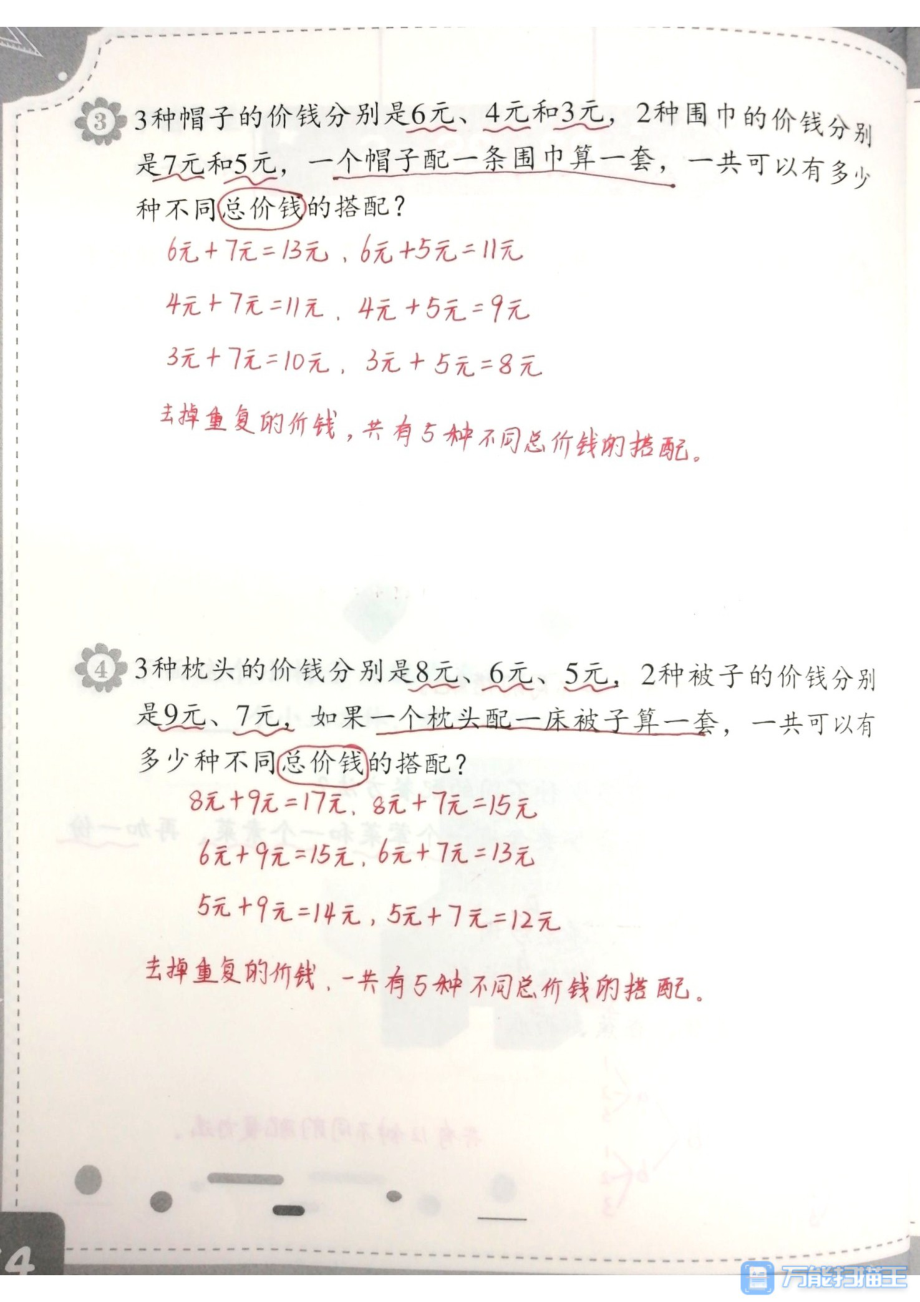 3 3种帽子的价钱分别是6元、4元和3元，2种围巾的价钱分别
是7元和5元，一个帽子配一条围巾算一套，一共可以有多少
种不同总价钱的搭配？
6元+7元=13元、6元+5元=11元
4元+7元=11元、4元+5元=9元
3元+7元=10元、3元+5元=8元
去掉重复的价钱，共有5种不同总价钱的搭配。
4 3种枕头的价钱分别是8元、6元、5元，2种被子的价钱分别
是9元、7元，如果一个枕头配一床被子算一套，一共可以有
多少种不同总价钱的搭配？
8元+9元=17元、8元+7元=15元
6元+9元=15元、6元+7元=13元
5元+9元=14元，5元+7元=12元
去掉重复的价钱、一共有5种不同总价钱的搭配。
4
万能扫描王